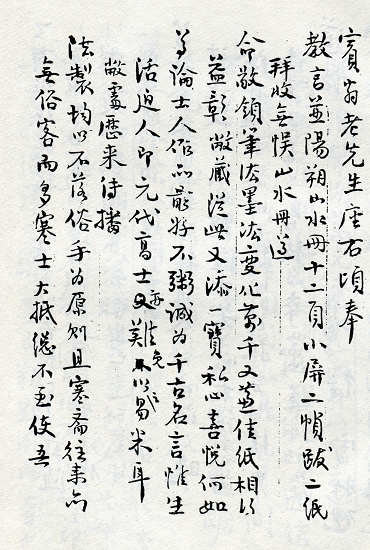 賓翁老先生座右頃奉
教言並陽朔山水冊十二頁小屏二幀跋二紙
拜收無悞山水冊遵
命敬領筆法墨法變化萬千又兼佳紙相得
益彰敝藏從此又添一寶私心喜悅何如
論士人作品最好不粥誠為千古名言惟生
活迫人即元代高士又再難免不以易米耳
敝處歷來待
法製均以不落俗手為原則且寒齋往來亦
無俗客而多寒士大抵總不至使吾